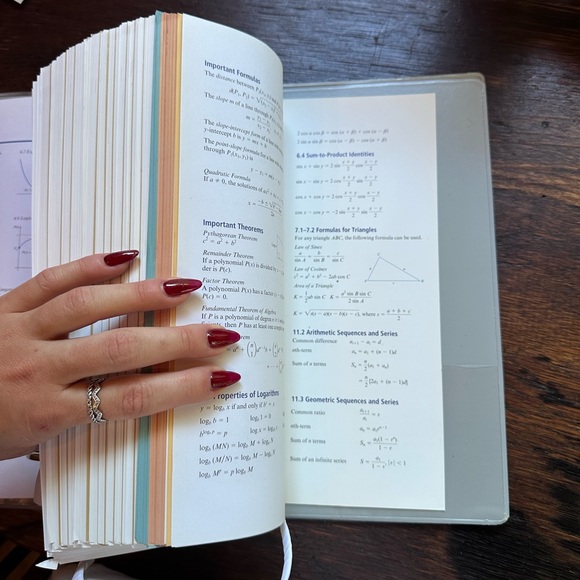 Important Formulas
The distance between P₁(x₁, y₁)
d(P₁, P₂) = √(x₂ −
The slope m of a line through P₁
m =
The slope-intercept form of a line
y-intercept b is y = mx + b
The point-slope formula for a line
through P₁(x₁, y₁) is
y − y₁ = m(x
Quadratic Formula
If a ≠ 0, the solutions of ax² +
x = −b ± √
2a
Important Theorems
Pythagorean Theorem
c² = a² + b²
Remainder Theorem
If a polynomial P(x) is divided by
der is P(c).
Factor Theorem
A polynomial P(x) has a factor
P(c) = 0.
Fundamental Theorem of Algebra
If P is a polynomial of degree
then P has at least one
Properties of Logarithms
y = log_b x if and only if
log_b b = 1 log_b 1 = 0
b^(log_b p) = p
log_b (MN) = log_b M + log_b N
log_b (M/N) = log_b M − log_b N
log_b M^p = p log_b M
2 cos α cos β = cos (α + β) + cos (α − β)
6.4 Sum-to-Product Identities
sin x + sin y = 2 sin (x + y)/2 cos (x − y)/2
sin x − sin y = 2 cos (x + y)/2 sin (x − y)/2
cos x + cos y = 2 cos (x + y)/2 cos (x − y)/2
cos x − cos y = −2 sin (x + y)/2 sin (x − y)/2
7.1–7.2 Formulas for Triangles
For any triangle ABC, the following formulas can be used.
Law of Sines
a/sin A = b/sin B = c/sin C
Law of Cosines
c² = a² + b² − 2ab cos C
Area of a Triangle
K = ½ab sin C K = a² sin B sin C / 2 sin A
K = √s(s − a)(s − b)(s − c), where s = (a + b + c)/2
11.2 Arithmetic Sequences and Series
Common difference aᵢ₊₁ − aᵢ = d
nth-term aₙ = a₁ + (n − 1)d
Sum of n terms Sₙ = n/2 (a₁ + aₙ)
= n/2 [2a₁ + (n − 1)d]
11.3 Geometric Sequences and Series
Common ratio aᵢ₊₁/aᵢ = r
nth-term aₙ = a₁rⁿ⁻¹
Sum of n terms Sₙ = a₁(1 − rⁿ)/(1 − r)
Sum of an infinite series S = a₁/(1 − r), |r| < 1